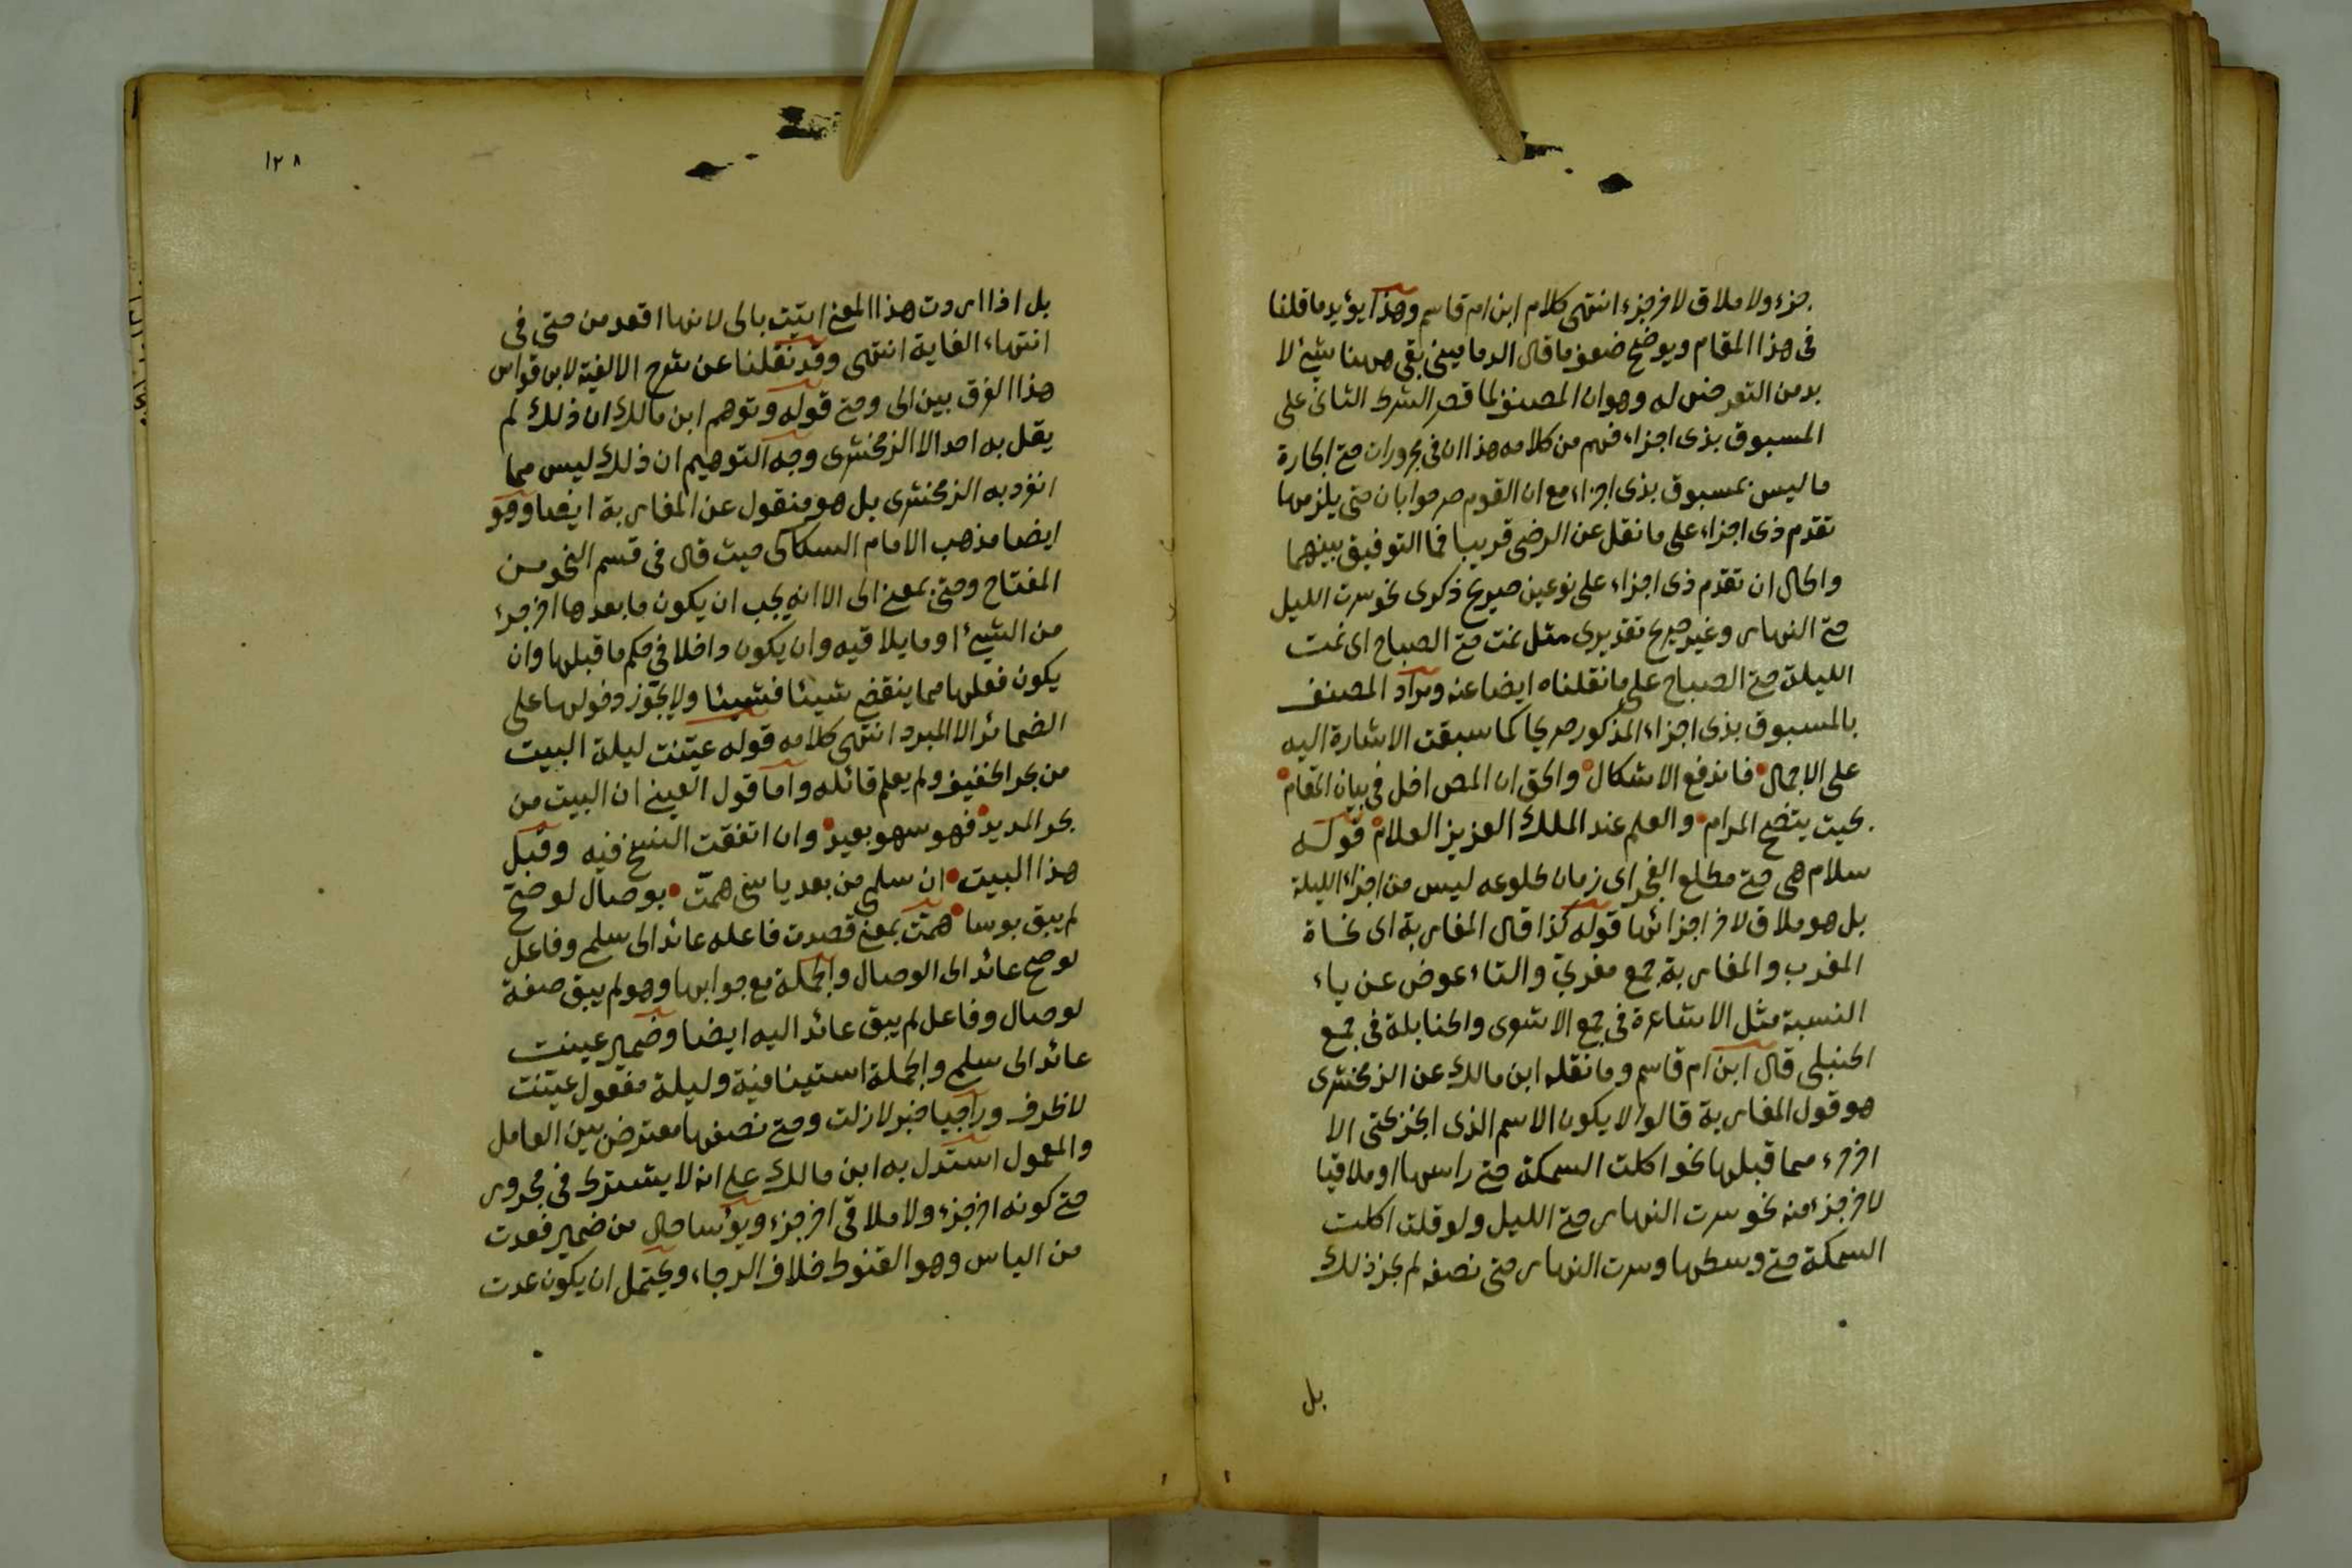 جزء ولا ملاق لاخر جزء انتهى كلام ابن ام قاسم وهذا يؤيد ما قلنا
فى هذا المقام ويوضح ضعف ما قال الدمامينى بقى ههنا شئ لا
بد من التعرض له وهو ان المصنف لما قصر الشرط الثانى على
المسبوق بذى اجزاء فهم من كلامه هذا ان فى مجرورات حتى الجارة
ما ليس بمسبوق بذى اجزاء مع ان القوم صرحوا بان حتى يلزمها
تقدم ذى اجزاء على ما نقل عن الرضى قريبا فما التوفيق بينهما
والحال ان تقدم ذى اجزاء على نوعين صريح ذكرى نحو سرت الليل
حتى النهار وغير صريح تقديرى مثل نمت حتى الصباح اى نمت
الليلة حتى الصباح على ما نقلناه ايضا عنه ومراد المصنف
بالمسبوق بذى اجزاء المذكور صريحا كما سبقت الاشارة اليه
على الاجمال فاندفع الاشكال والحق ان المص اخل فى بيان المقام
بحيث يتضح المرام والعلم عند الملك العزيز العلام قوله
سلام هى حتى مطلع الفجر اى زمان طلوعه ليس من اجزاء الليلة
بل هو ملاق لاخر اجزائها قوله كذا قال المغاربة اى نحاة
المغرب والمغاربة جمع مغربى والتاء عوض عن ياء
النسبة مثل الاشاعرة فى جمع الاشعرى والحنابلة فى جمع
الحنبلى قال ابن ام قاسم وما نقله ابن مالك عن الزمخشرى
هو قول المغاربة قالوا لا يكون الاسم الذى انجر بحتى الا
اخر جزء مما قبلها نحو اكلت السمكة حتى راسها او ملاقيا
لاخر جزء منه نحو سرت النهار حتى الليل ولو قلت اكلت
السمكة حتى وسطها وسرت النهار حتى نصفه لم يجز ذلك
بل
١٢٨
بل اذا اردت هذا المعنى اتيت بالى لانها اقعد من حتى فى
انتهاء الغاية انتهى وقد نقلنا عن شرح الالفية لابن قواس
هذا الفرق بين الى وحتى قوله وتوهم ابن مالك ان ذلك لم
يقل به احد الا الزمخشرى وجه التوهيم ان ذلك ليس مما
انفرد به الزمخشرى بل هو منقول عن المغاربة ايضا وهو
ايضا مذهب الامام السكاكى حيث قال فى قسم النحو من
المفتاح وحتى بمعنى الى الا انه يجب ان يكون ما بعدها اخر جزء
من الشئ او ما يلاقيه وان يكون داخلا فى حكم ما قبلها وان
يكون فعلها مما ينقضى شيئا فشيئا ولا يجوز دخولها على
الضمائر الا المبرد انتهى كلامه قوله عينت ليلة البيت
من بحر الخفيف ولم يعلم قائله واما قول العينى ان البيت من
بحر المديد فهو سهو بعيد وان اتفقت النسخ فيه وقبل
هذا البيت ان سلمى من بعد ياسى همت بوصال لو صح
لم يبق بوسا همت بمعنى قصدت فاعله عائد الى سلمى وفاعل
لو صح عائد الى الوصال والجملة مع جوابها وهو لم يبق صفة
لوصال وفاعل لم يبق عائد اليه ايضا وضمير عينت
عائد الى سلمى والجملة استينافية وليلة مفعول عينت
لا ظرف وراجيا خبر لا زلت وحتى نصفها معترض بين العامل
والمعمول استدل به ابن مالك على انه لا يشترط فى مجرور
حتى كونه اخر جزء ولا ملاقى اخر جزء ويؤسا حال من ضمير فعدت
من الياس وهو القنوط خلاف الرجاء ويحتمل ان يكون عدت